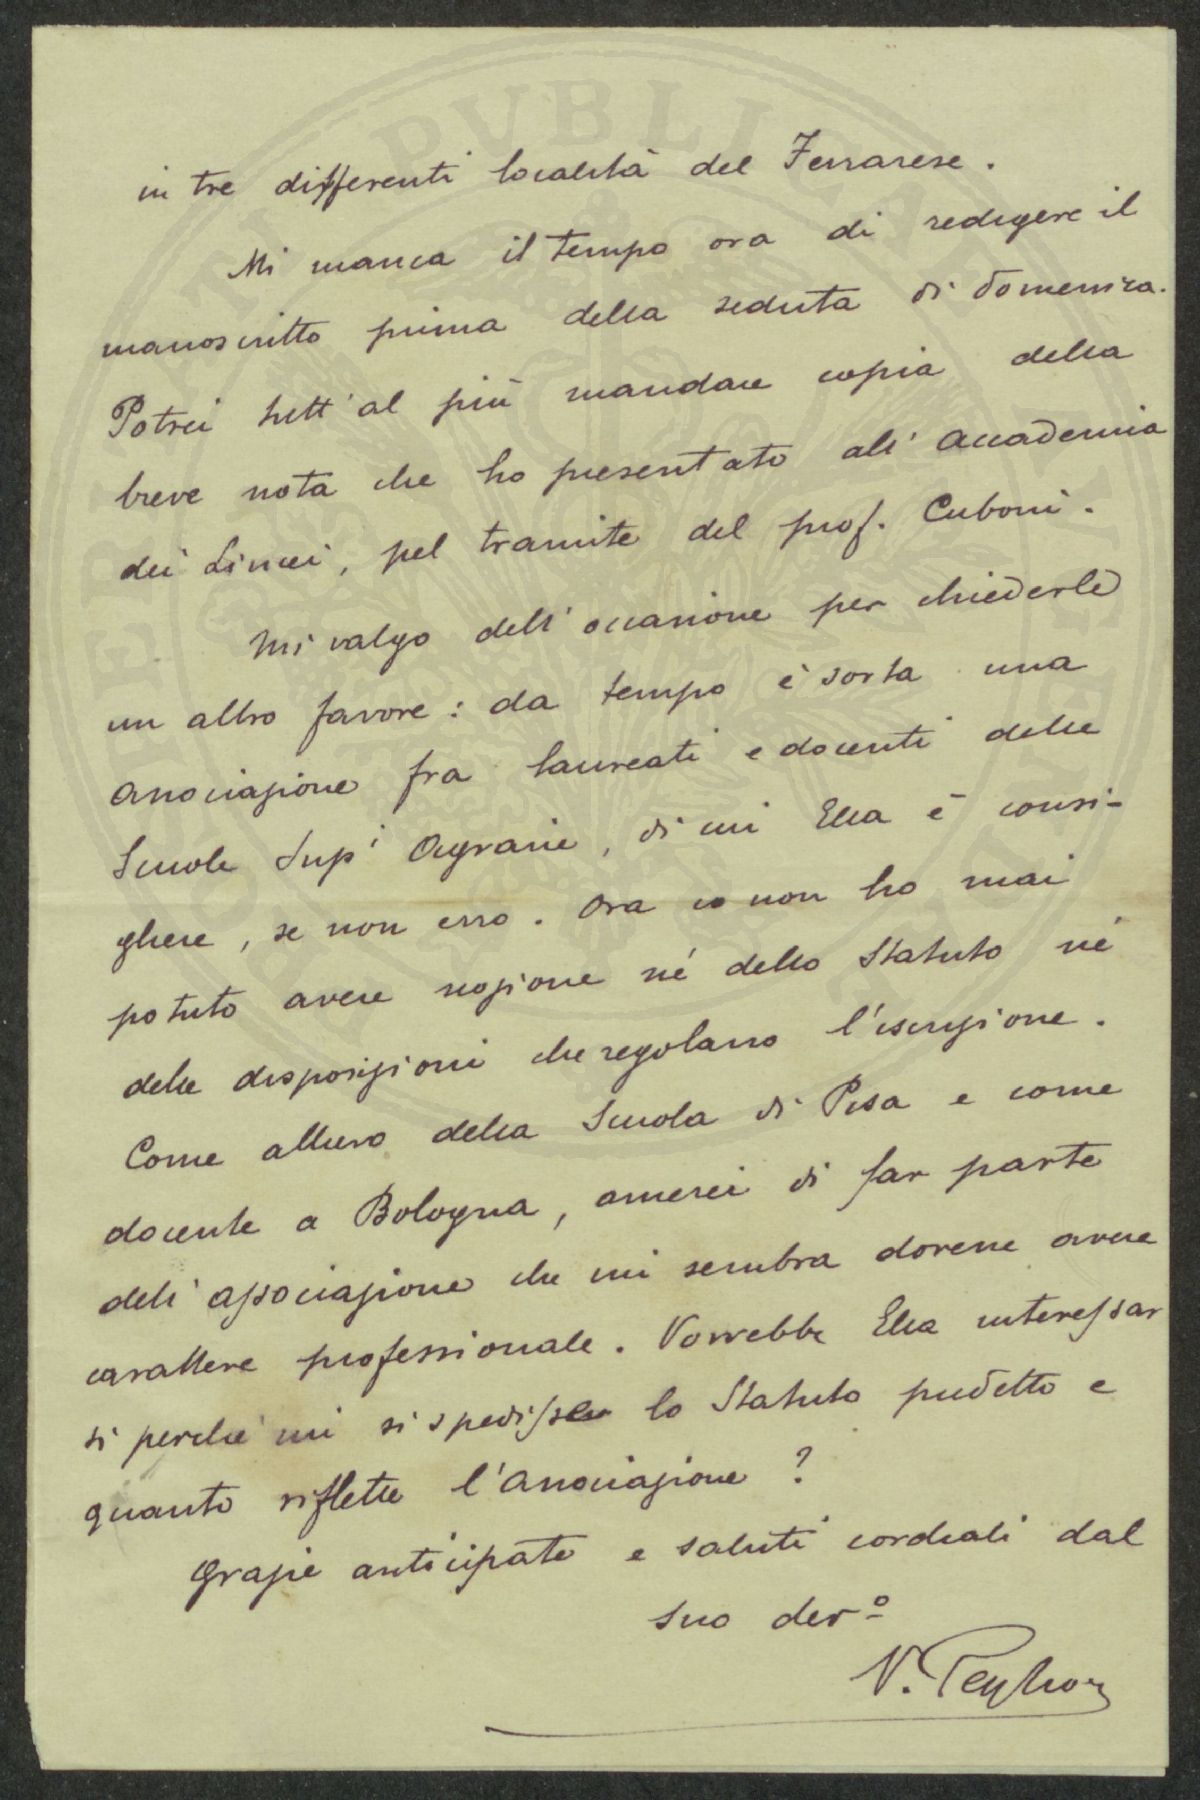 in tre differenti località del Ferrarese.
Mi manca il tempo ora di redigere il
manoscritto prima della seduta di domenica.
Potrei tutt'al più mandare copia della
breve nota che ho presentato all'Accademia
dei Lincei, pel tramite del prof. Cuboni.
Mi valgo dell'occasione per chiederle
un altro favore: da tempo è sorta una
associazione fra laureati e docenti delle
Scuole Sup.i Agrarie, di cui Ella è consi-
gliere, se non erro. Ora io non ho mai
potuto avere nozione né dello Statuto né
delle disposizioni che regolano l'iscrizione.
Come allievo della Scuola di Pisa e come
docente a Bologna, amerei di far parte
dell'associazione che mi sembra dovrebbe avere
carattere professionale. Vorrebbe Ella interessar
si perché mi si spedisse lo Statuto predetto e
quanto riflette l'Associazione?
Grazie anticipate e saluti cordiali dal
suo dev.o
V. Peglion
PVBLI